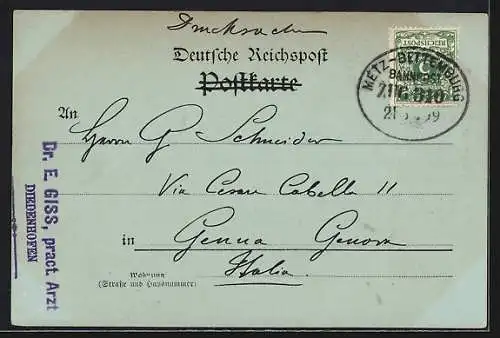 Drucksache
Deutsche Reichspost
Postkarte
REICHSPOST
METZ-BETTEMBURG
BAHNPOST
ZUG 510
An
Herrn G Schneider
Via Cesare Cabella 11
in Genua Genova
Italia
Wohnung
(Straße und Hausnummer)
Dr. E. GISS, pract. Arzt
DIEDENHOFEN